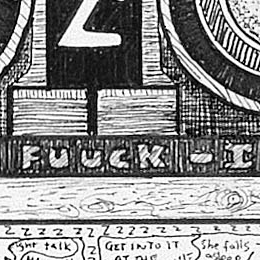 Z
FUUCK - I
Z Z Z Z Z Z Z Z Z Z Z Z
talk
GET INTO IT
AT THE
She falls
asleep!